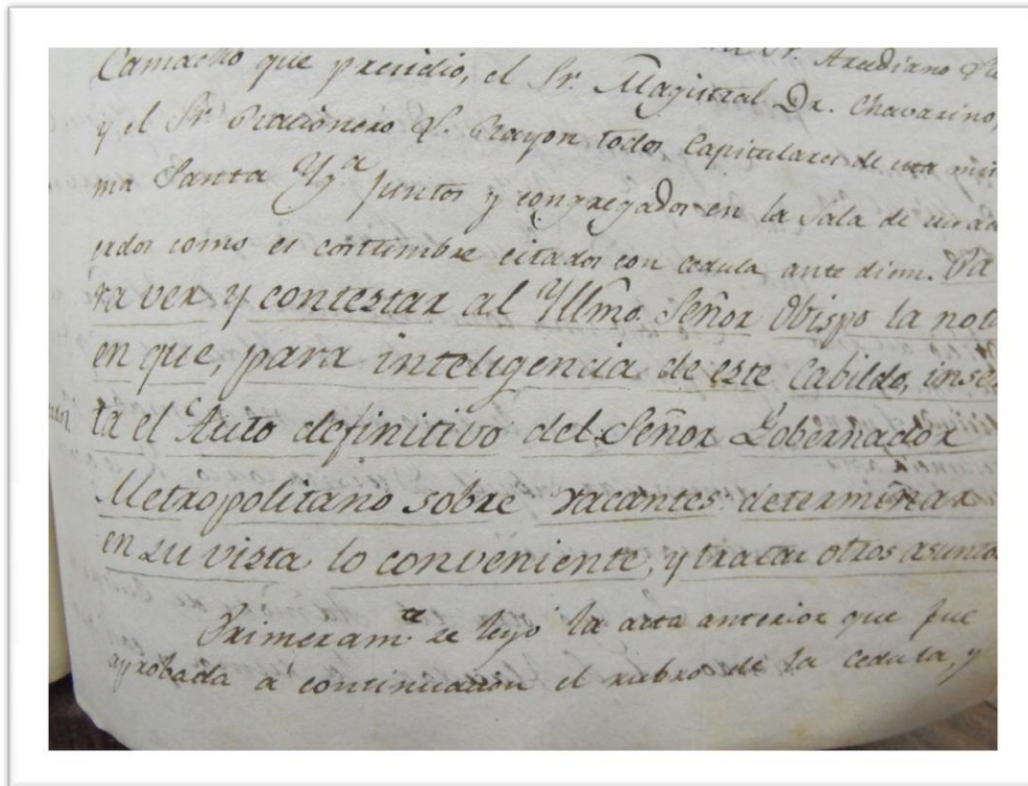 Sr. Arcediano
Camacho que precidio, el Sr. Magistral Dr. Chavarino,
y el Sr. Racionero L. Rayon todos Capitulares de esta mis
ma Santa Yg.a juntos y congregados en la Sala de
erdos como es costumbre citados con cedula ante diem. Pa
ra ver y contestar al Yllmo. Señor Obispo la nota
en que, para inteligencia de este Cabildo, inser
ta el Auto definitivo del Señor Gobernador
Metropolitano sobre vacantes determinar
en su vista lo conveniente, y tratar otros asuntos
Primeram.te se leyó la acta anterior que fue
aprobada á continuacion el rubro de la cedula, y